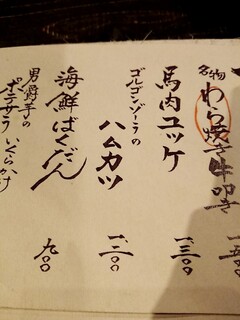 名物 わら焼き牛叩き 一、五〇〇
馬肉ユッケ 一、三〇〇
ゴルゴンゾーラの
ハムカツ 一、二〇〇
海鮮ばくだん 九〇〇
男爵芋の
ポテサラ いくらかけ